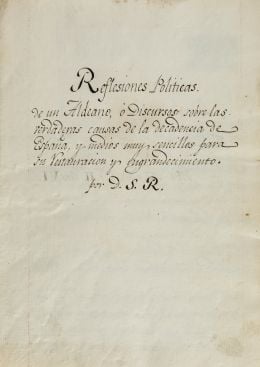 Reflesiones Politicas.
de un Aldeano, ò Discursos sobre las
verdaderas causas de la decadencia de
España, y medios muy sencillos para
su restauracion y engrandecimiento.
por D. S. R.